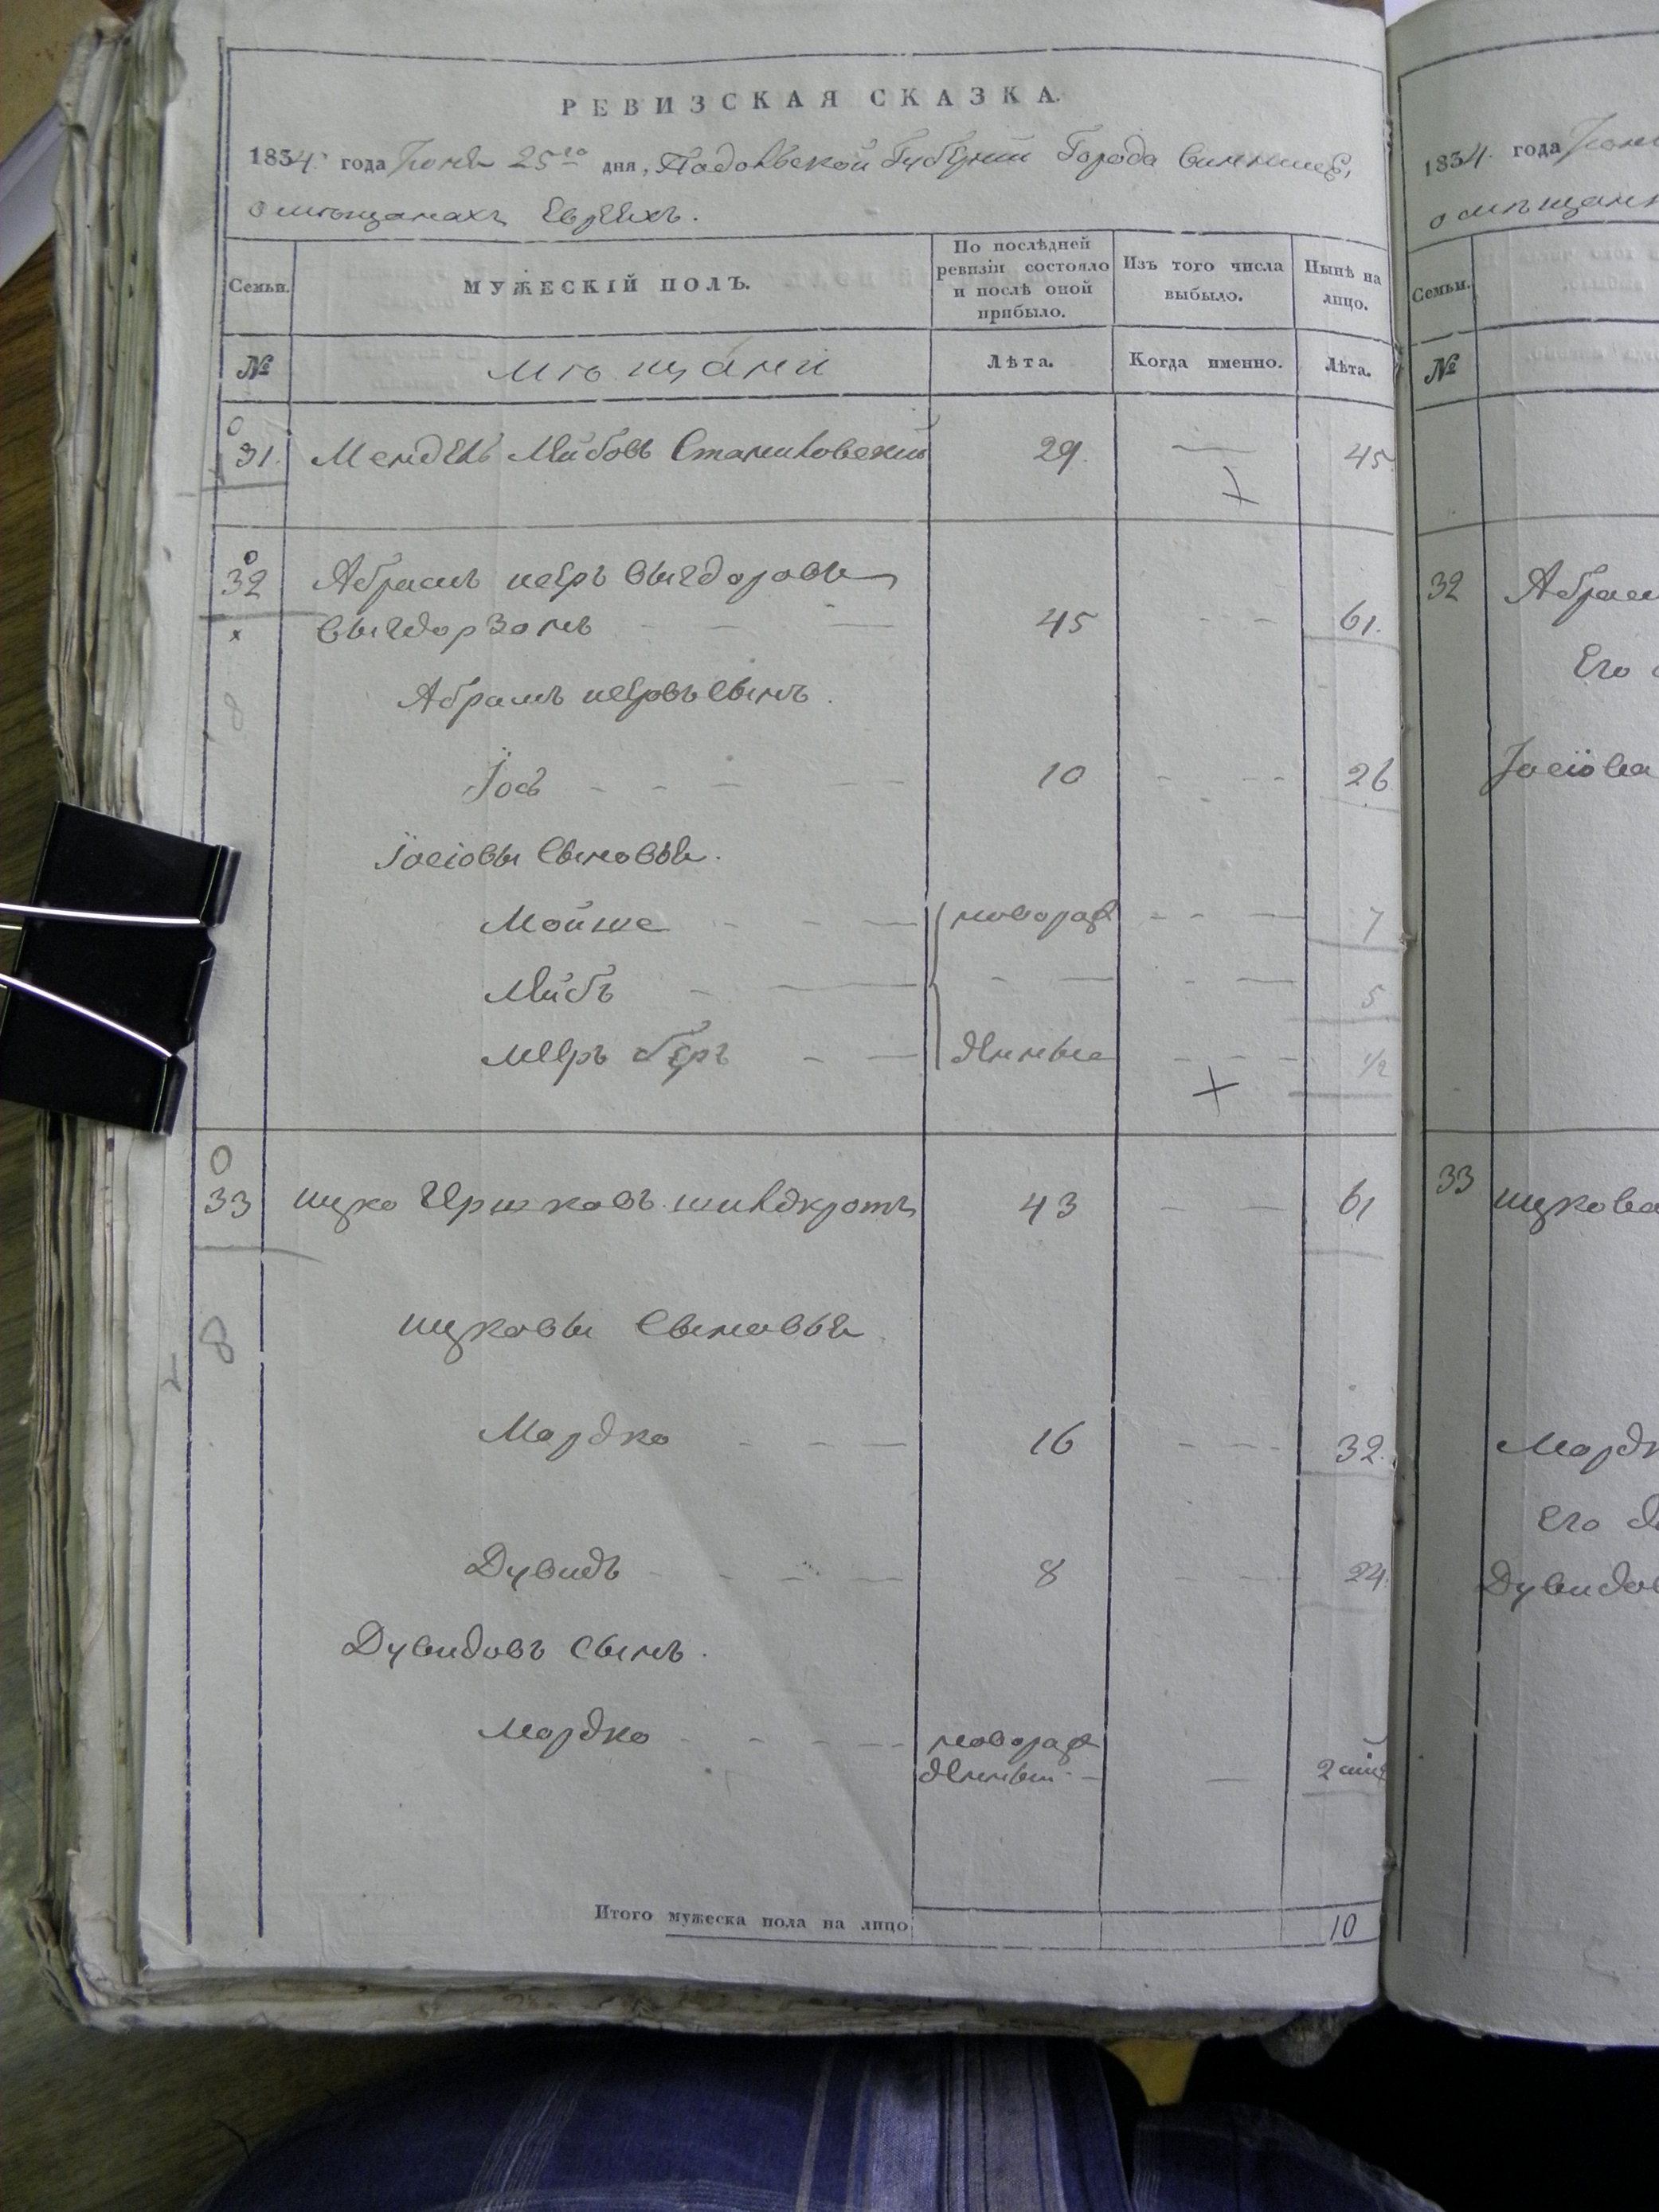 РЕВИЗСКАЯ СКАЗКА.
1834. года Іюня 25го дня, Подольской Губерніи Города Винницы,
о мѣщанахъ Евреяхъ.
Семьи. МУЖЕСКІЙ ПОЛЪ. По послѣдней ревизіи состояло и послѣ оной прибыло. Изъ того числа выбыло. Нынѣ на лицо.
№ мѣщане Лѣта. Когда именно. Лѣта.
31. Мендель Лейбовъ Станиловский 29. — 45
32 Абрамъ
45 61.
Абрамъ сынъ.
Іось 10 26
Іосіовы сыновья.
Мойше новорож 7
Лейбъ 5
Меръ Беръ денные 1/2
33 Ицко Гершковъ 43 61
Ицковы сыновья
Мордко 16 32.
Дувидъ 8 24.
Дувидовъ сынъ.
Мордко новорож
денный — 2
Итого мужеска пола на лицо 10
1834. года
о мѣщан
Семьи.
№
32 Абрам
Его
Іосіова
33 Ицкова
Мордк
Его
Дувидов